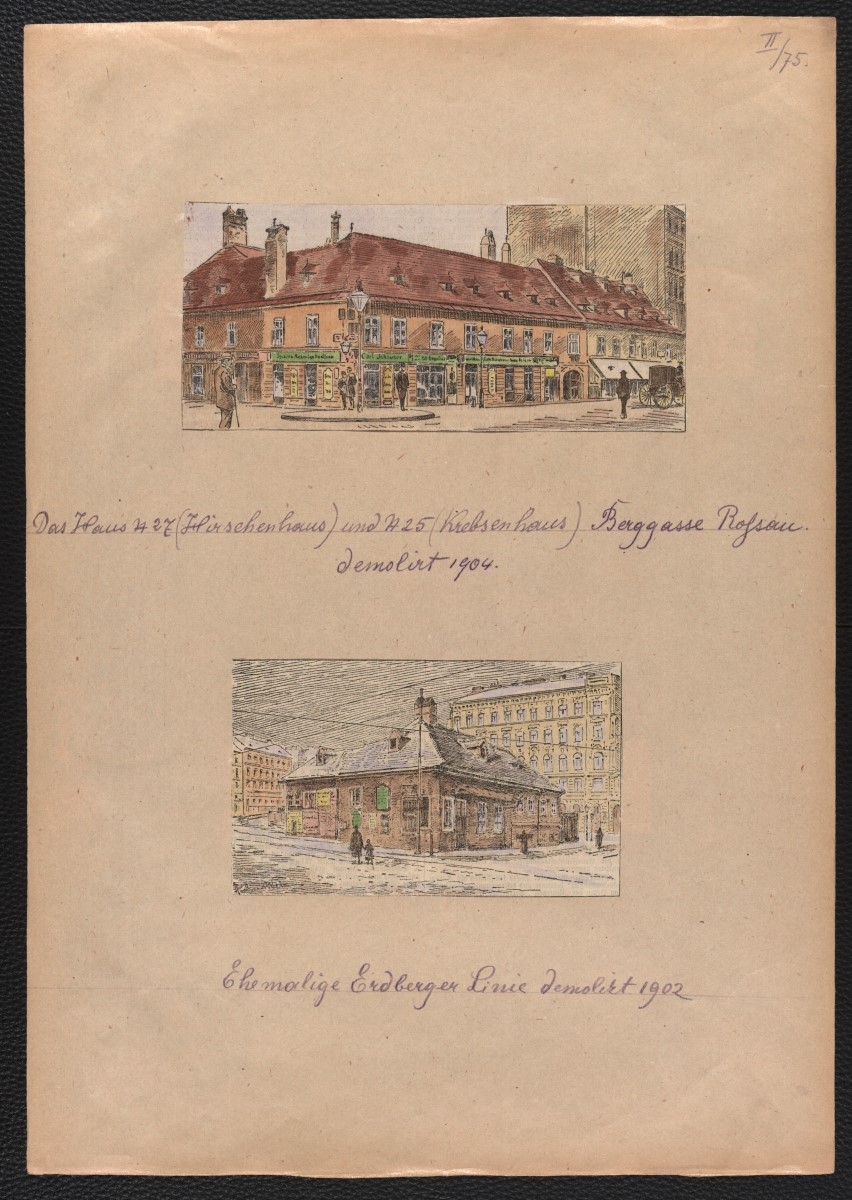 II/75.
Das Haus # 27 (Hirschenhaus) und # 25 (Krebsenhaus) Berggasse Roſsau.
demolirt 1904.
Ehemalige Erdberger Linie demolirt 1902